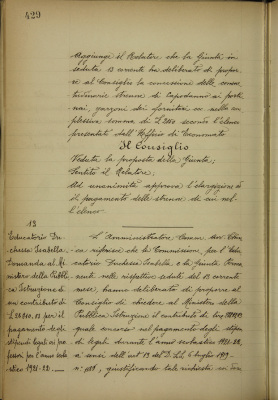 429
Aggiunge il Relatore che la Giunta in
seduta 13 corrente ha deliberato di propor-
re al Consiglio la concessione delle consue-
tudinarie strenne di Capodanno ai porti-
nai, garzoni dei fornitori ecc nella com-
plessiva somma di L. secondo l'elenco
presentato dall'Ufficio di Economato
Il Consiglio
Veduta la proposta della Giunta;
Sentito il Relatore;
Ad unanimità approva l'elargizione ed
il pagamento delle strenne di cui nel-
l'elenco
13
Educatorio Du-
chessa Isabella.
Domanda al Mi-
nistero della Pubbli-
ca Istruzione di
un contributo di
L. per il
pagamento degli
stipendi legali ai pro-
fessori per l'anno scola-
stico 1921-22.
L'Amministratore Comm.
ca riferisce che la Commissione per l'Edu-
catorio Duchessa Isabella e la Giunta Perma-
nente nelle rispettive sedute del 13 corrente
mese hanno deliberato di proporre al
Consiglio di chiedere al Ministero della
Pubblica Istruzione il contributo di
quale concorso nel pagamento degli stipen-
di legali durante l'anno scolastico 1921-22,
a sensi dell'art° 19 del D. L. 6 luglio 1919 -
n° giustificando tale richiesta coi